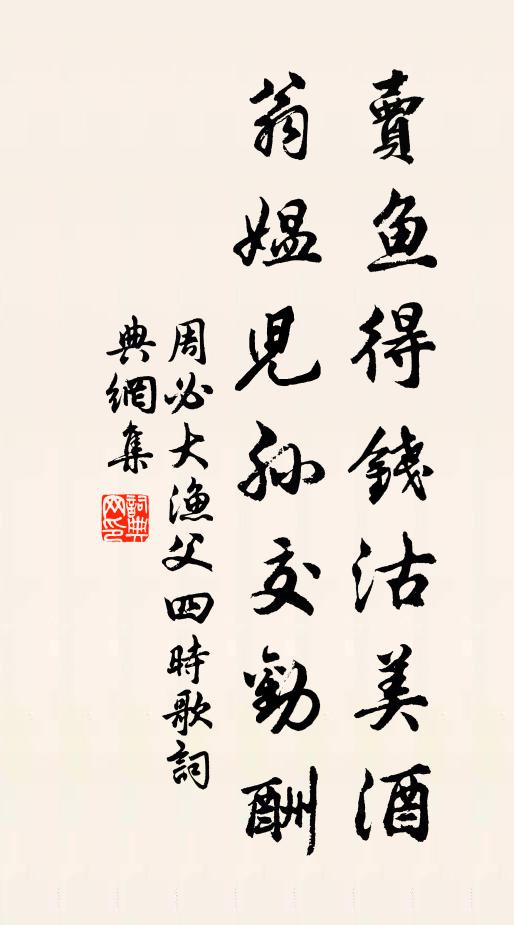 賣魚得錢沽美酒
翁媼兒孙交勸酬
周必大漁父四時歌詞
典網集
詞典网印